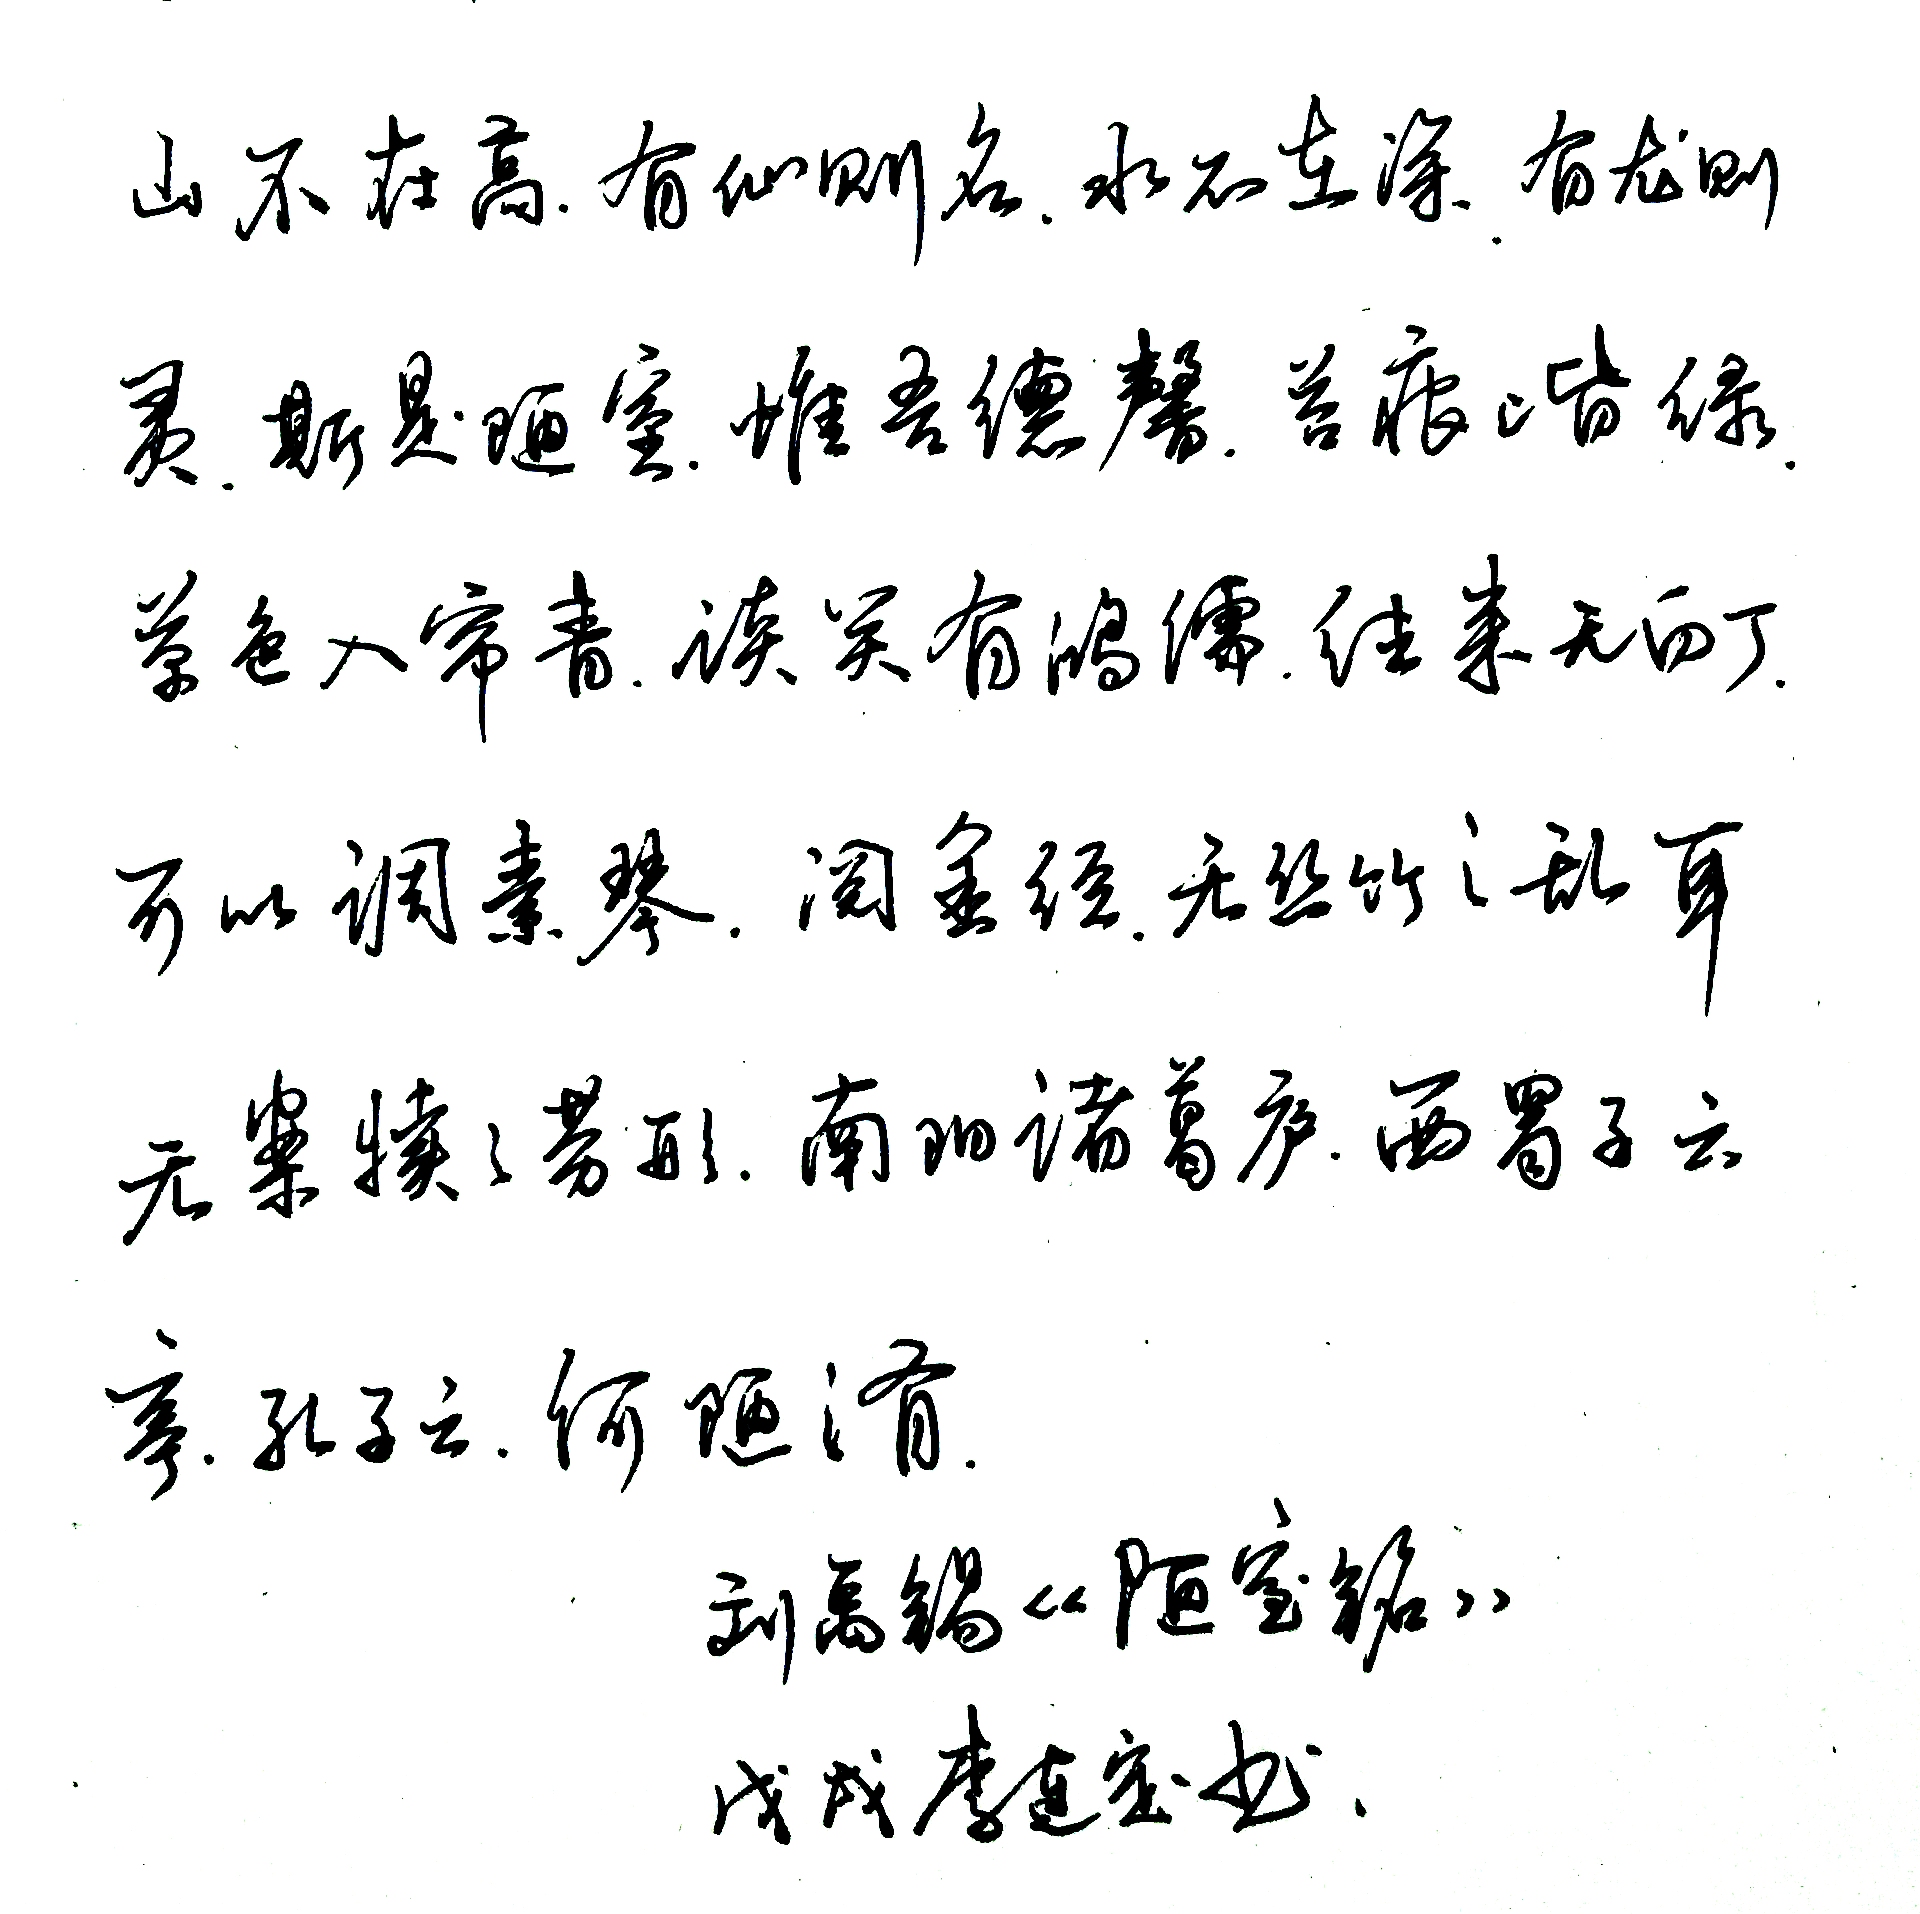 山不在高.有仙则名.水不在深.有龙则
灵.斯是陋室.惟吾德馨.苔痕上皆绿.
草色入帘青.谈笑有鸿儒.往来无白丁.
可以调素琴.阅金经.无丝竹之乱耳
无案牍之劳形.南阳诸葛庐.西蜀子云
亭.孔子云.何陋之有.
刘禹锡《陋室铭》
戊戌李连宝书.